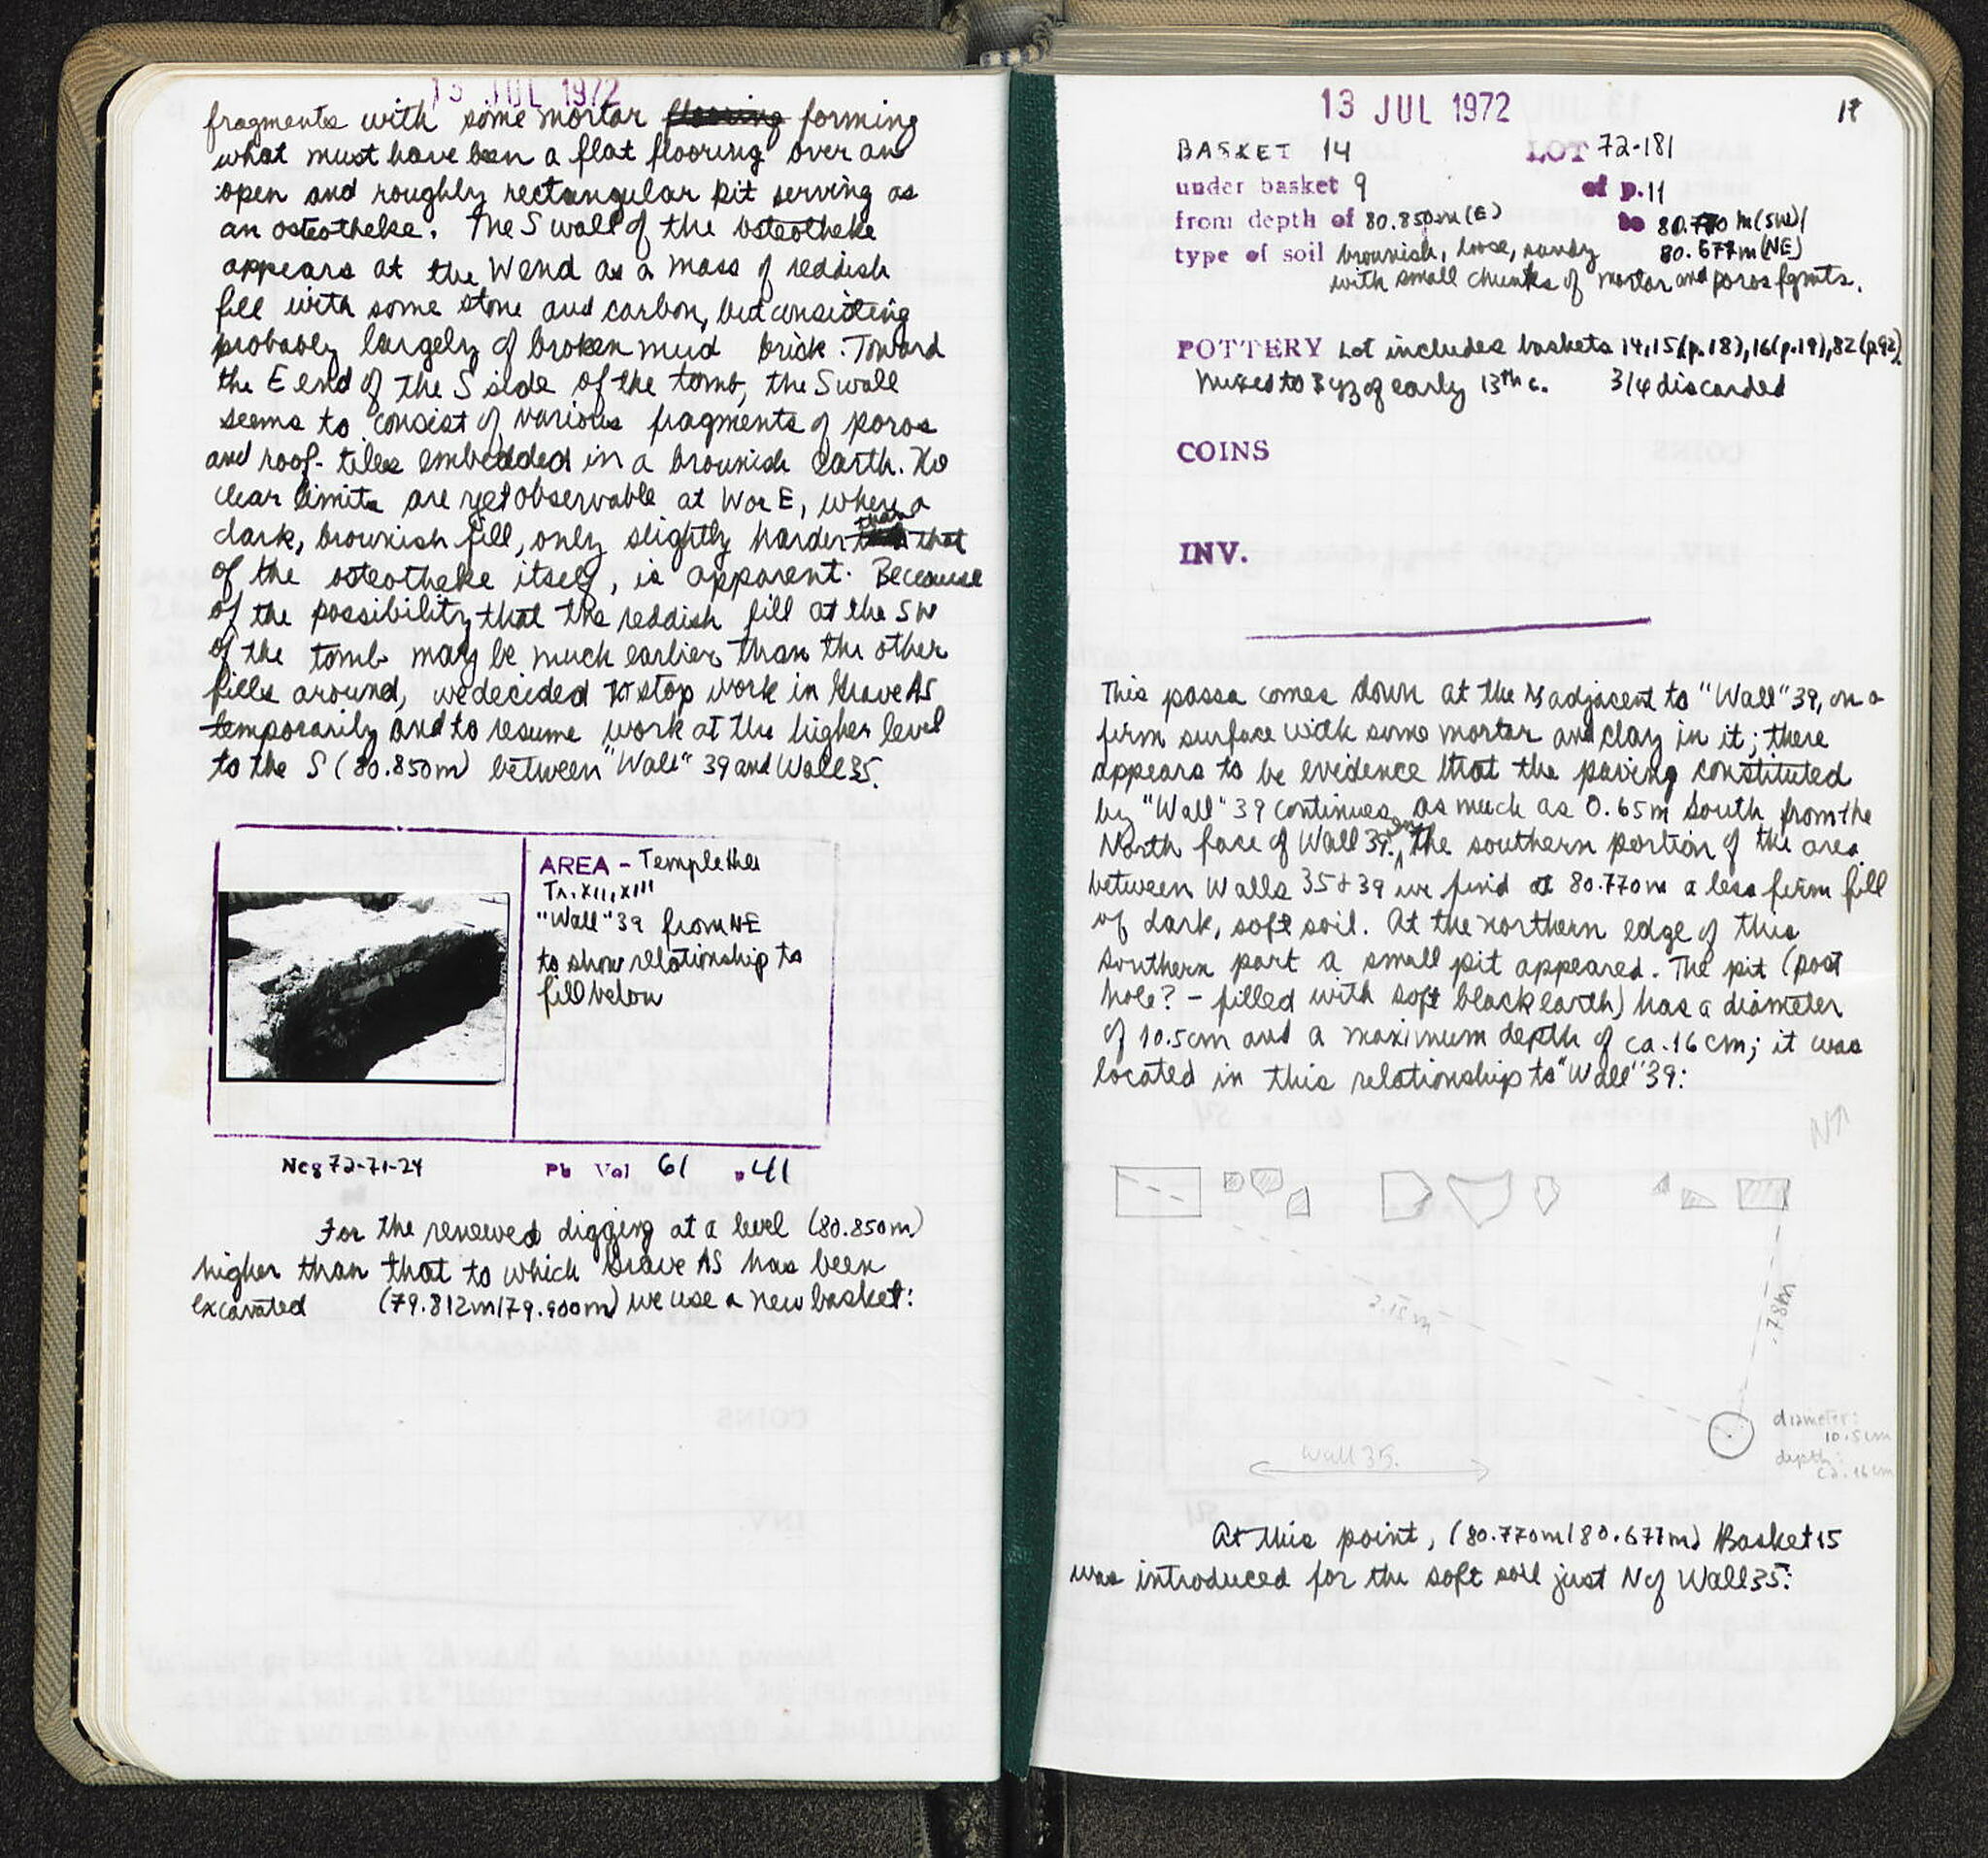 13 JUL 1972
fragments with some mortar forming
what must have been a flat flooring over an
open and roughly rectangular pit serving as
an osteotheke. The S wall of the osteotheke
appears at the W end as a mass of reddish
fill with some stone and carbon, but consisting
probably largely of broken mud brick. Toward
the E end of the S side of the tomb, the S wall
seems to consist of various fragments of poros
and roof-tiles embedded in a brownish earth. No
clear limits are yet observable at W or E, where a
dark, brownish fill, only slightly harder than that
of the osteotheke itself, is apparent. Because
of the possibility that the reddish fill at the SW
of the tomb may be much earlier than the other
fills around, we decided to stop work in Grave AS
temporarily and to resume work at the higher level
to the S (80.850m) between "Wall" 39 and Wall 35.
AREA - Temple Hill
Tr. XII, XIII
"Wall" 39 from NE
to show relationship to
fill below
Neg 72-71-24 Pb Vol 61 p 41
For the renewed digging at a level (80.850m)
higher than that to which Grave AS has been
excavated (79.812m/79.900m) we use a new basket:
13 JUL 1972
BASKET 14 LOT 72-181
under basket 9 of p. 11
from depth of 80.850m (E) to 80.770 m (SW)/
type of soil brownish, loose, sandy 80.677m (NE)
with small chunks of mortar and poros fgmts.
POTTERY Lot includes baskets 14, 15 (p. 18), 16 (p. 19), 82 (p. 92)
Mixed to of early 13th c. 3/4 discarded
COINS
INV.
This passa comes down at the N adjacent to "Wall" 39, on a
firm surface with some mortar and clay in it; there
appears to be evidence that the paving constituted
by "Wall" 39 continues as much as 0.65m South from the
North face of Wall 39. In the southern portion of the area
between Walls 35 & 39 we find at 80.770m a less firm fill
of dark, soft soil. At the northern edge of this
southern part a small pit appeared. The pit (post
hole? - filled with soft black earth) has a diameter
of 10.5cm and a maximum depth of ca. 16 cm; it was
located in this relationship to "Wall" 39:
N
.78m
diameter:
10.5 cm
depth:
ca. 16 cm
Wall 35.
At this point, (80.770m/80.677m) Basket 15
was introduced for the soft soil just N of Wall 35: